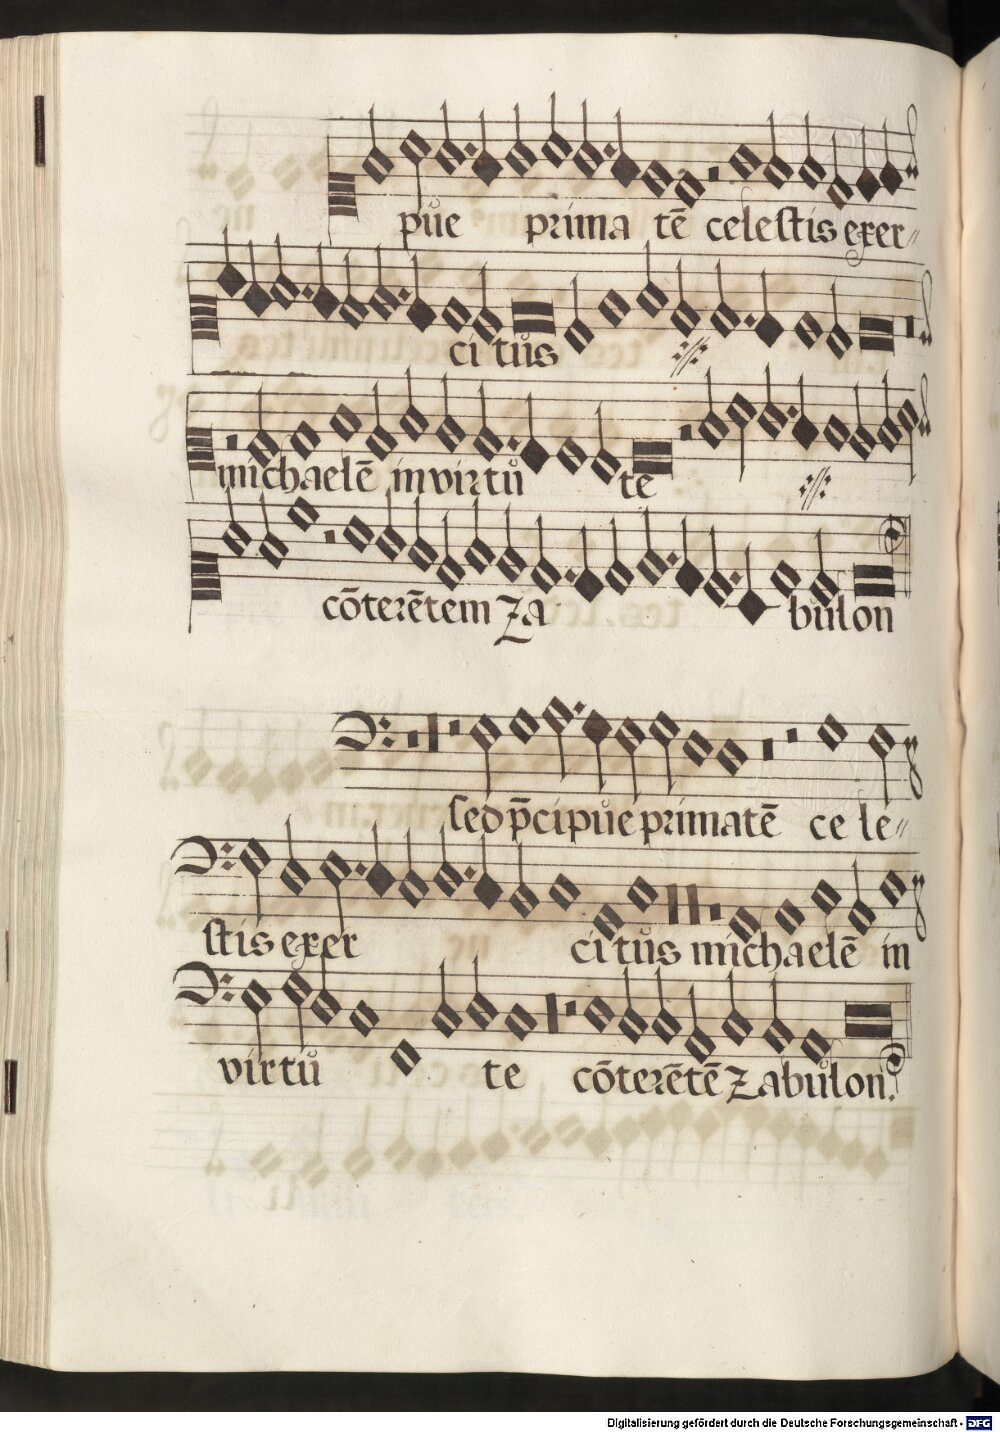 půe prima tē celestis exer〃
ci tůs ·//·
michaelē in virtů te ·//·
cōterētem Za bulon
sed p̄cipůe primatē ce le〃
stis exer ci tůs michaelē in
virtů te cōterētē Zabůlon.
Digitalisierung gefördert durch die Deutsche Forschungsgemeinschaft - DFG